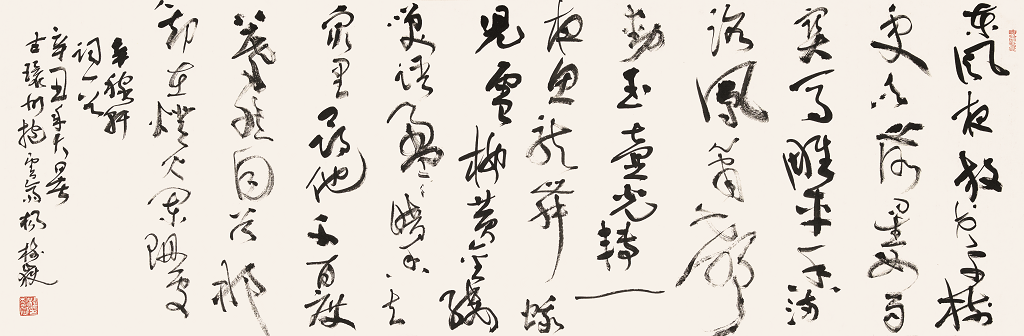 東風夜放花千樹
更吹落星如雨
寶馬雕車香滿
路鳳簫聲
動玉壺光轉一
夜魚龍舞蛾
兒雪柳黃金縷
笑語盈盈暗香去
眾里尋他千百度
驀然回首那
却在燈火闌珊處
辛稼軒
詞一首
辛丑年大暑
古環州抱雲齋楊